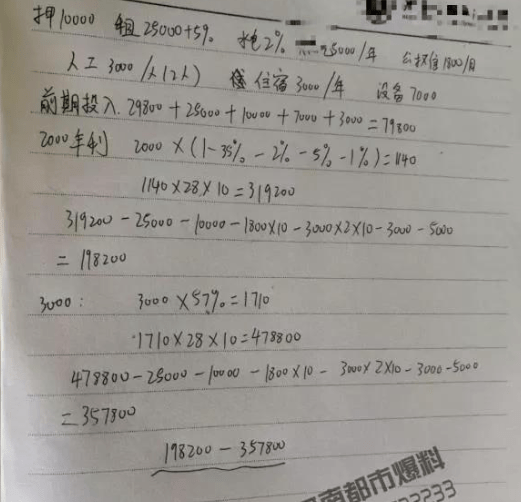 押10000 租25000+5% 水电2% 25000/年 公摊值1800/月
人工3000/人(2人) 住宿3000/年 设备7000
前期投入.29800+25000+10000+7000+3000=79800
2000年利 2000×(1-35%-2%-5%-1%)=1140
1140×28×10=319200
319200-25000-10000-1800×10-3000×2×10-3000-5000
=198200
3000: 3000×57%=1710
1710×28×10=478800
478800-25000-10000-1800×10-3000×2×10-3000-5000
=357800
198200-357800
南都市爆料
03233